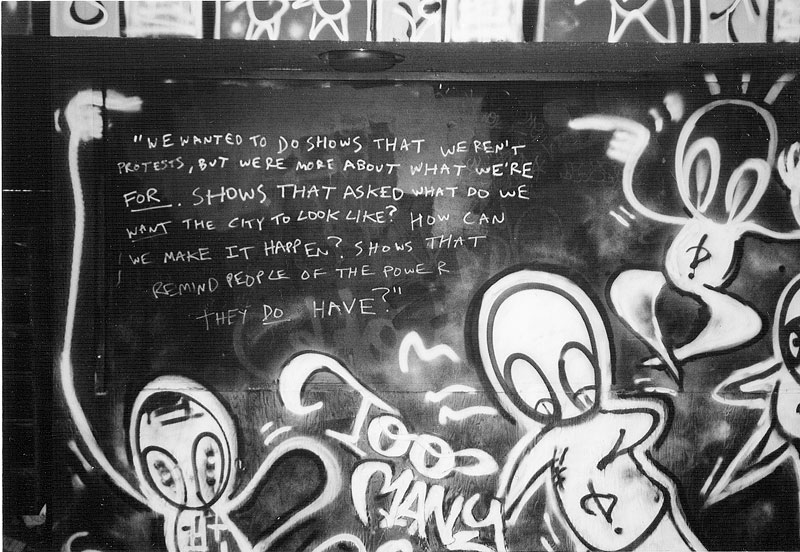 "WE WANTED TO DO SHOWS THAT WEREN'T
PROTESTS, BUT WERE MORE ABOUT WHAT WE'RE
FOR. SHOWS THAT ASKED WHAT DO WE
WANT THE CITY TO LOOK LIKE? HOW CAN
WE MAKE IT HAPPEN? SHOWS THAT
REMIND PEOPLE OF THE POWER
THEY DO HAVE?"
TOO
MANY